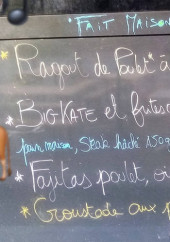 "FAIT MAISON
* Ragout de Poulet" à
* BIG KATE et frites
pain maison, Steak haché 150g
* Fajitas poulet,
* Croustade aux